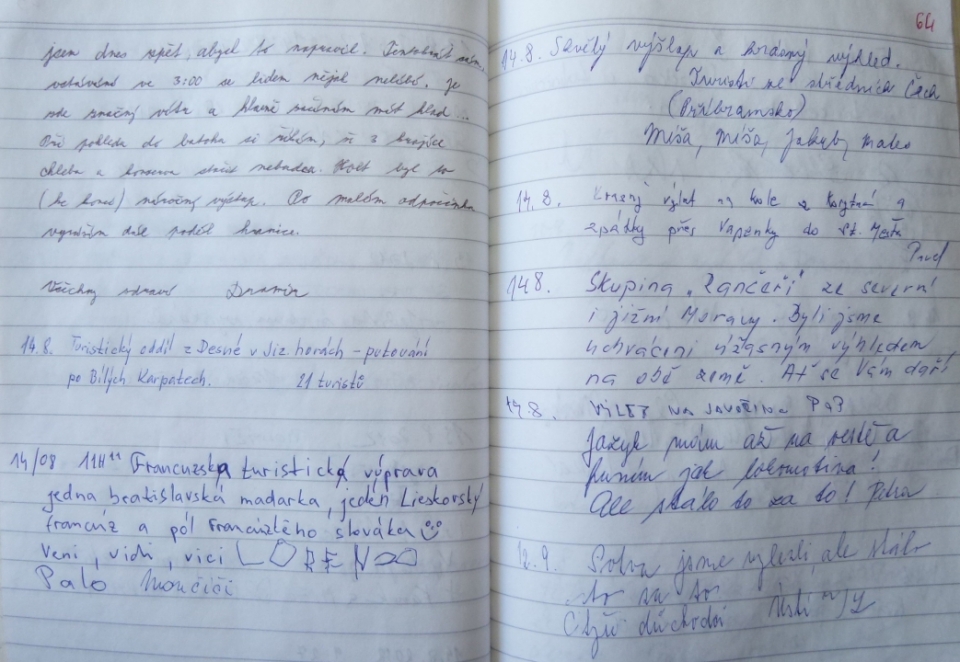 jsem dnes zpět, abych to napravil. Tentokrát sám,
vstávání ve 3:00 se lidem nějak nelíbí. Je
zde značný vítr a hlavně začínám mít hlad...
Při pohledu do batohu si říkám, že 2 krajíce
chleba a konzerva stačit nebudou. Květ byl to
(ke konci) náročný výstup. Po malém odpočinku
vyrážím dále podél hranice.
Všechny zdraví
14.8. Turistický oddíl z Desné v Jiz. horách - putování
po Bílých Karpatech. 21 turistů
14/08 11H11 Francuzská turistická výprava
jedna bratislavská madarka, jeden Lieskovský
francúz a pól Francúzkého slováka
Veni, vidi, vici
Palo Mončiči
64
14.8. Skvělý výšlap a krásný výhled.
Turisti ze středních Čech
(Příbramsko)
Míša, Míša, Jakub, Marko
14.8. Krásný výlet na kole z Korytná a
zpátky přes Vápenky do St. Města
Pavel
14.8. Skupina „Rančeři" ze severní
i jižní Moravy. Byli jsme
uchváceni úžasným výhledem
na obě země. Ať se Vám daří
14.8. VÝLET na Javořinu
Jazyk mám až na vestě a
funím jak lokomotiva!
Ale stálo to za to!
12.9. Sotva jsme vylezli, ale stálo
to za to
Čtyři důchodci Ústí n/L